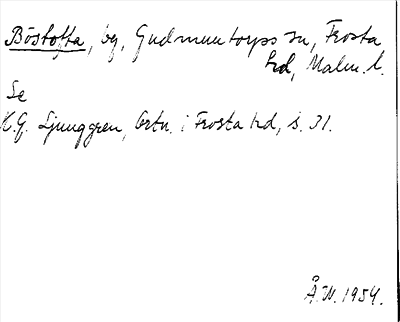 Böstofta, by, Gudmuntorps sn, Frosta
hd, Malm. l.
Se
K.G. Ljunggren, Ortn. i Frosta hd, s. 31.
Å.W. 1954.